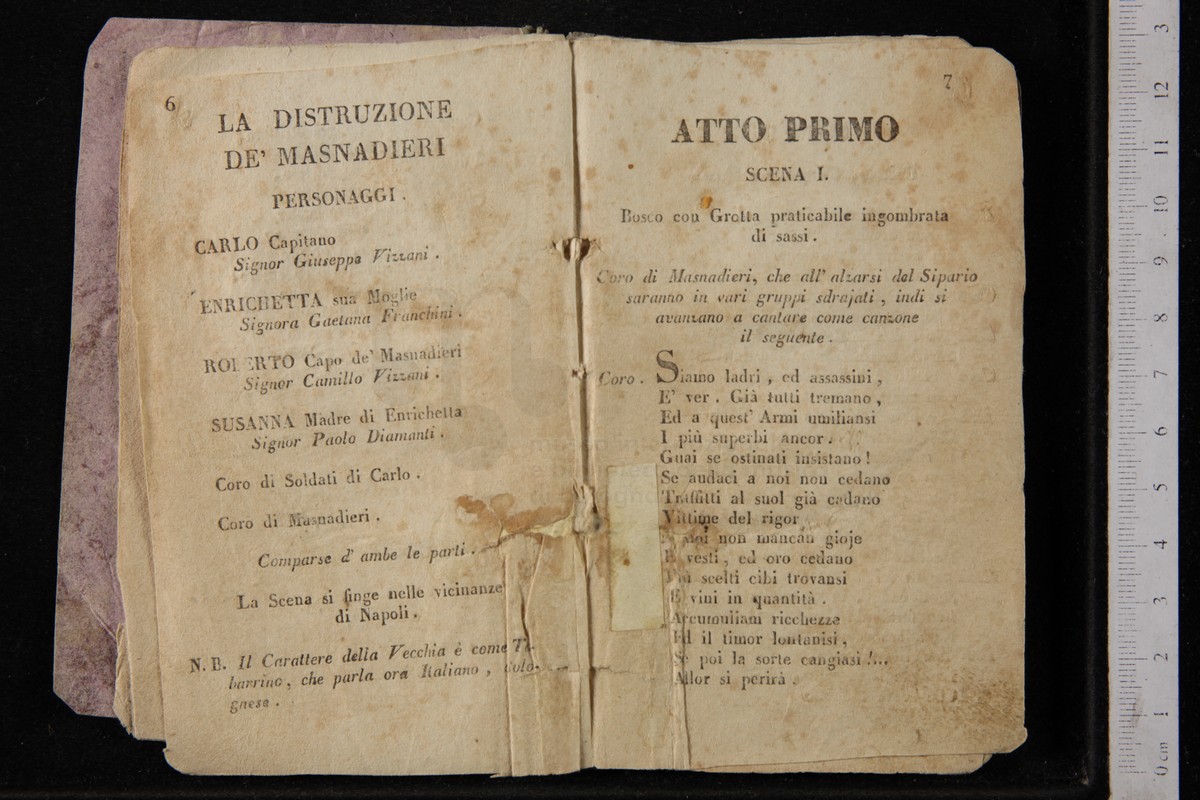 6
LA DISTRUZIONE
DE' MASNADIERI
PERSONAGGI .
CARLO Capitano
Signor Giuseppe Vizzani .
ENRICHETTA sua Moglie
Signora Gaetana Franchini .
ROBERTO Capo de' Masnadieri
Signor Camillo Vizzani .
SUSANNA Madre di Enrichetta
Signor Paolo Diamanti .
Coro di Soldati di Carlo .
Coro di Masnadieri .
Comparse d' ambe le parti .
La Scena si finge nelle vicinanze
di Napoli .
N. B. Il Carattere della Vecchia è come
barrino, che parla ora Italiano ,
gnese .
7
ATTO PRIMO
SCENA I.
Bosco con Grotta praticabile ingombrata
di sassi .
Coro di Masnadieri, che all' alzarsi del Sipario
saranno in vari gruppi sdrajati , indi si
avanzano a cantare come canzone
il seguente .
Coro . Siamo ladri , ed assassini ,
E' ver . Già tutti tremano ,
Ed a quest' Armi umiliansi
I più superbi ancor .
Guai se ostinati insistano !
Se audaci a noi non cedano
Trafitti al suol già cadano
Vittime del rigor
noi non mancan gioje
vesti , ed oro cedano
scelti cibi trovansi
E vini in quantità .
Accumuliam ricchezze
Ed il timor lontanisi ,
Se poi la sorte cangiasi !...
Allor si perirà .
0 cm 1 2 3 4 5 6 7 8 9 10 11 12 3